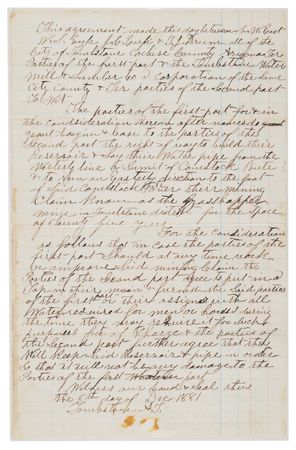 This agreement made this day between W East
Virgil Earp J C Earp & T J Drum all of the
City of Tombstone Cochise County Arizona Ter
Parties of the first part & the Tombstone Water
Mill & Lumber Co a Corporation of the Same
City County & Ter parties of the Second part
To Wit
The parties of the first part for & in
the Consideration herein after named
grant bargain & lease to the parties of the
Second part the right of way to build their
Reservoir & lay their Water pipe from the
Westerly line or Summit of Comstock Butte
& to Run in an Easterly direction to the foot
of Said Comstock over their mining
Claim Known as the Grasshopper
mine in Tombstone district for the Space
of twenty five years
For the Consideration
as follows that in case the parties of the
first part Should at any time work
or improve Said mining Claim the
Parties of the Second part agree to put in a
Tap in their main & furnish the Said parties
of the first or their assigns with all
Water required for men or horses during
the time they may require it for Such
purposes free of Charge & the parties of
the Second part further agree that they
Will Keep Said Reservoir & pipe in order
So that it will not be any damage to the
Parties of the first part
Witness our hand & Seal this
the 8th day of Dec 1881
Tombstone A.T.